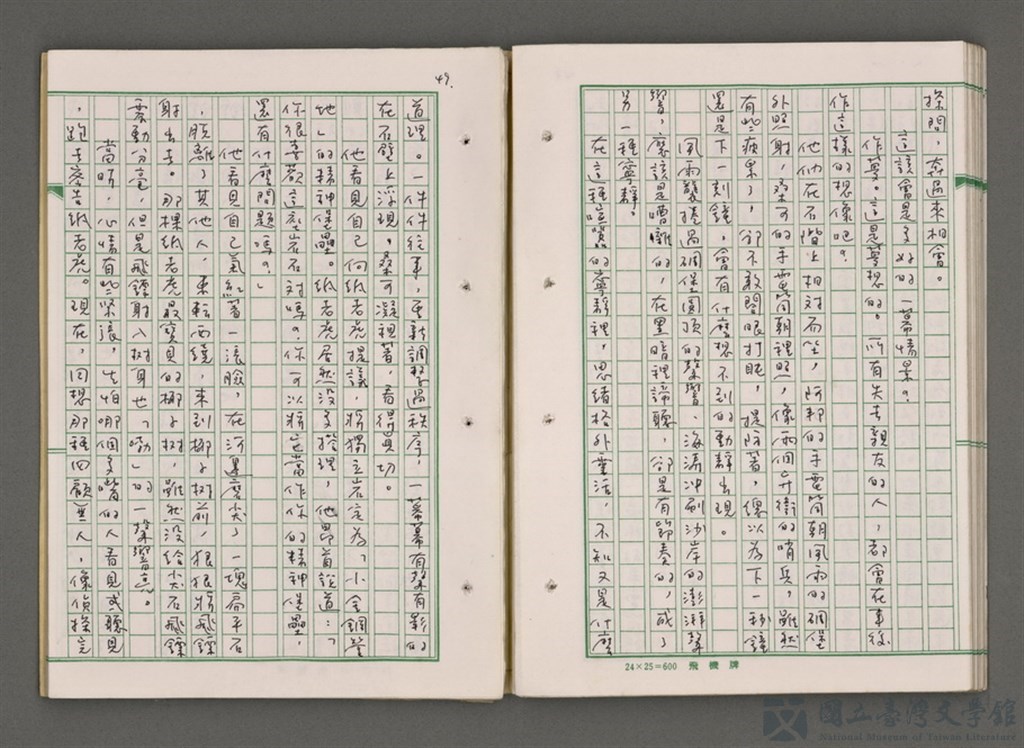 探問,在過來相會。
這該會是多好的一幕情景?
作夢。這是夢想的。所有失去親友的人,都會在事後
作這樣的想像吧?
他們在石階上相對而坐,阿邦的手電筒朝風雨的碉堡
外照射,桑可的手電筒朝裡照,像兩個兵衛的哨兵,雖然
有些疲累了,卻不敢閤眼打盹,提防著,總以為下一秒鐘
還是下一刻鐘,會有什麼想不到的動靜出現。
風雨襲捲過碉堡圓頂的聲響、海濤沖刷沙岸的澎湃聲
響,應該是嘈雜的,在黑暗裡諦聽,卻是有節奏的,成了
另一種寧靜。
在這種喧嚷的寧靜裡,思緒格外靈活,不知又是什麼
24×25=600 飛機牌
49.
道理。一件件往事,重新調整過秩序,一幕幕有聲有影的
在石壁上浮現,桑可凝視著,看得真切。
他看見自己向紙老虎提議,將獨立岩定為「小金鋼營
地」的精神堡壘。紙老虎居然沒多搭理,他昂首說道:「
你很喜歡這座岩石對嗎?你可以將它當作你的精神堡壘,
還有什麼問題嗎?」
他看見自己氣紅著一張臉,在河邊磨尖了一塊扁平石
,脫離了其他人,東轉西繞,來到椰子樹前,狠狠將飛鏢
射出去。那棵紙老虎最寶貝的椰子樹,雖然沒給尖石飛鏢
震動分毫,但是飛鏢射入樹身也「嘞」的一聲響亮。
當時,心情有些緊張,生怕哪個多嘴的人看見或聽見
,跑去密告紙老虎。現在,回想那種四顧無人,像偵探完
國立臺灣文學館
National Museum of Taiwan Literature